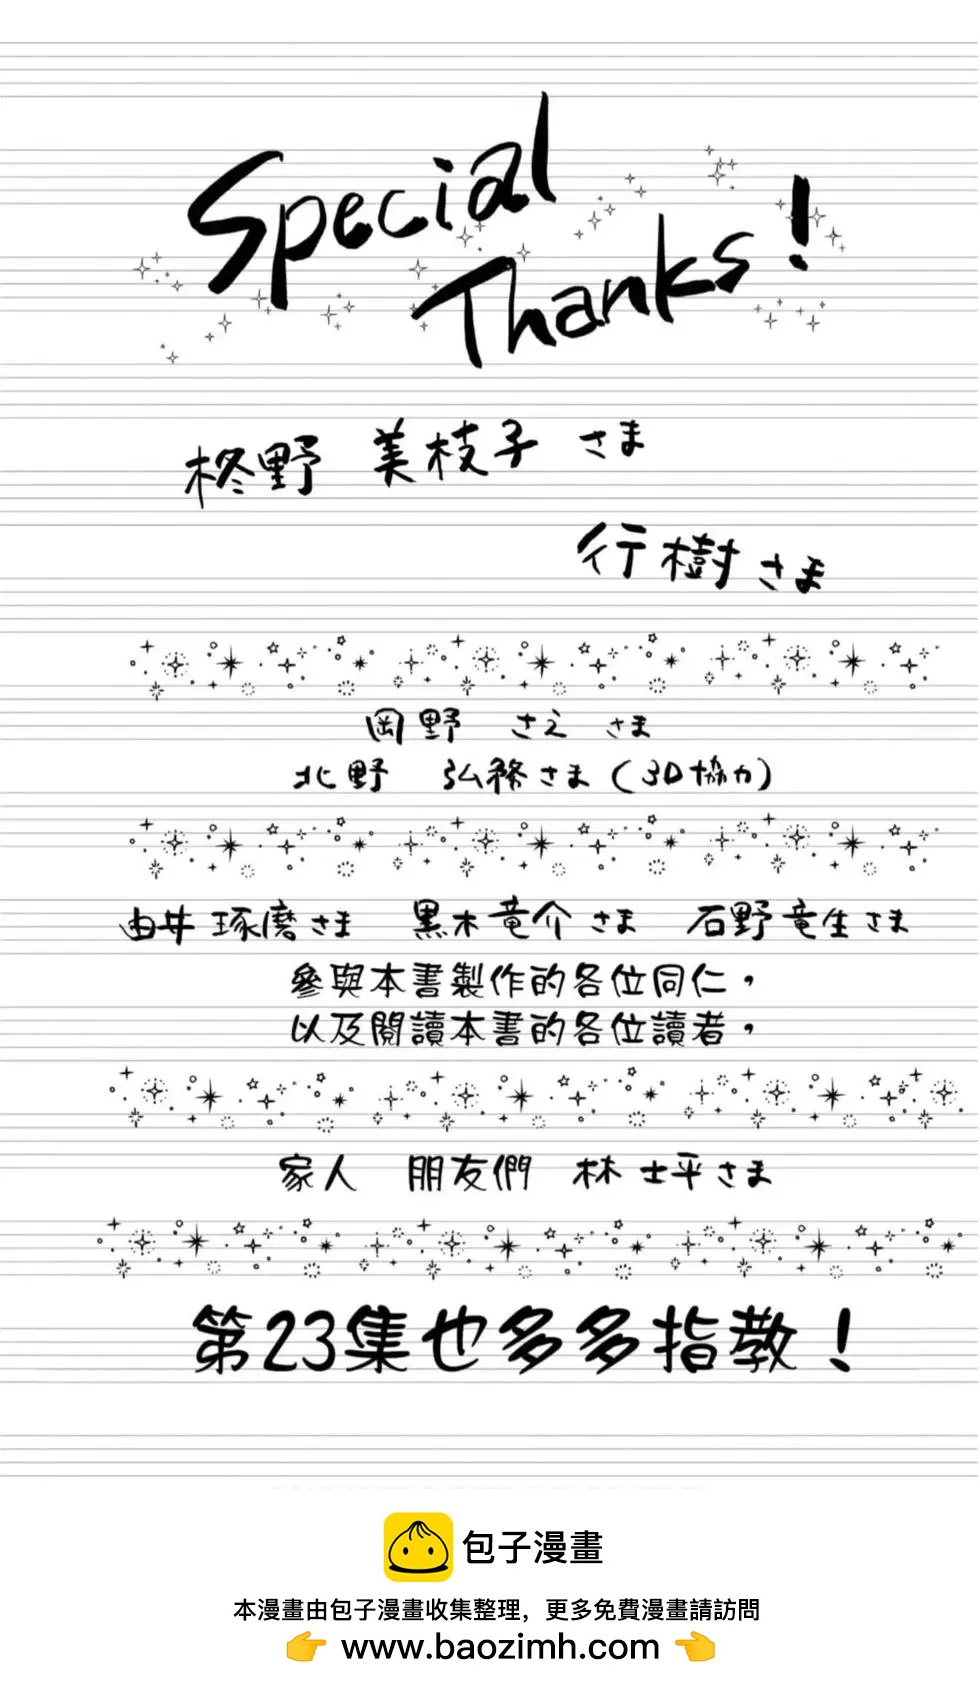 Special
Thanks!
柊野 美枝子 さま
行樹さま
岡野 さえ さま
北野 弘務さま(3D協力)
由井 琢磨さま 黒木竜介さま 石野竜生さま
參與本書製作的各位同仁，
以及閱讀本書的各位讀者，
家人 朋友們 林 士平さま
第23集也多多指教！
包子漫畫
本漫畫由包子漫畫收集整理，更多免費漫畫請訪問
👉 www.baozimh.com 👈